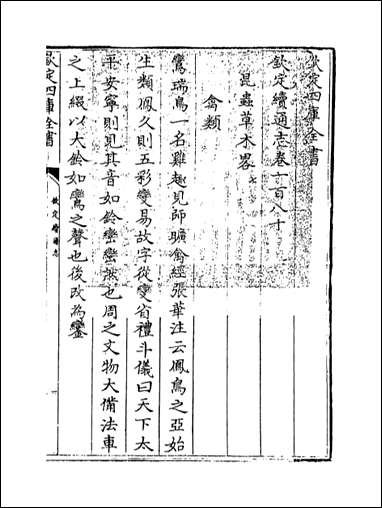 欽定四庫全書
欽定續通志卷一百八十
昆蟲草木畧
禽類
鸞瑞鳥一名雞趣見師曠禽經張華注云鳳鳥之亞始
生類鳳久則五彩變易故字從變省禮斗儀曰天下太
平安寧則見其音如鈴巒巒然也周之文物大備法車
之上綴以大鈴如鸞之聲也後改為鑾
欽定四庫全書
欽定續通志